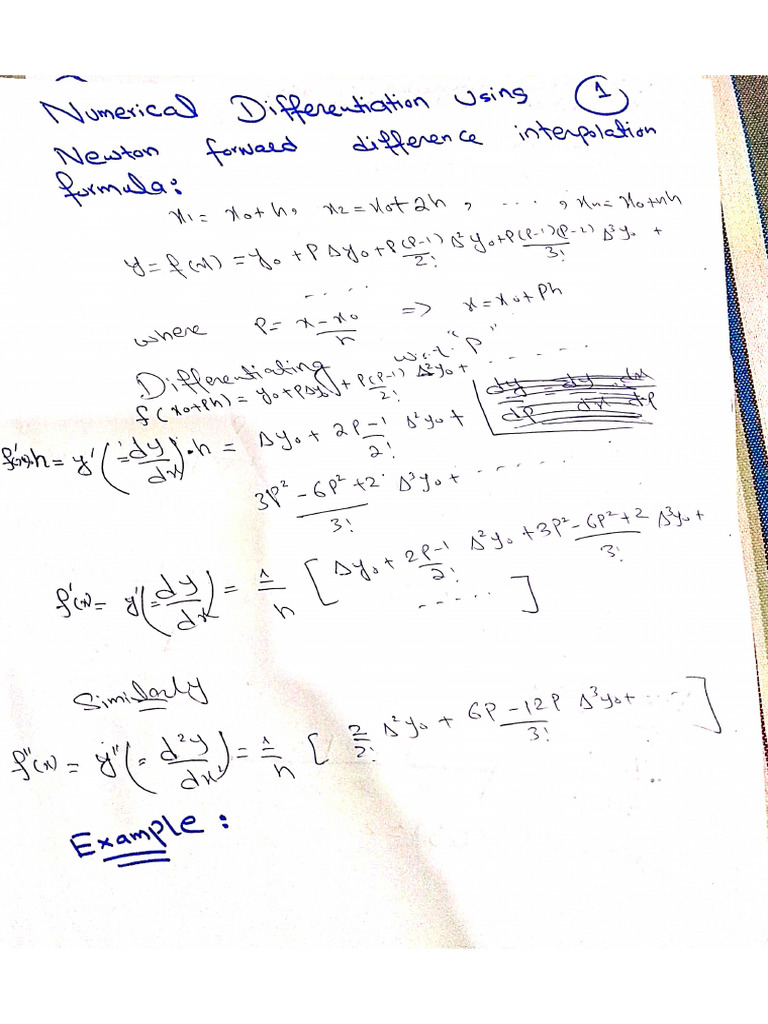 Numerical Differentiation Using ①
Newton forward difference interpolation
formula:
x₁ = x₀+h, x₂ = x₀+2h, ...., xₙ = x₀+nh
y = f(x) = y₀ + PΔy₀ + P(P-1)/2! Δ²y₀ + P(P-1)(P-2)/3! Δ³y₀ +
.....
where P = x-x₀/h => x = x₀+Ph
Differentiating w.r.t "P"
f(x₀+Ph) = y₀+PΔy₀ + P(P-1)/2! Δ²y₀ + ......
f'(x).h = y' (= dy/dx).h = Δy₀ + 2P-1/2! Δ²y₀ +
3P²-6P²+2/3! Δ³y₀ + ......
f'(x) = y'(= dy/dx) = 1/h [Δy₀ + 2P-1/2! Δ²y₀ + 3P²-6P²+2/3! Δ³y₀ +
.....]
Similarly
f''(x) = y''(= d²y/dx²) = 1/h [2/2! Δ²y₀ + 6P-12P/3! Δ³y₀ + ....]
Example: